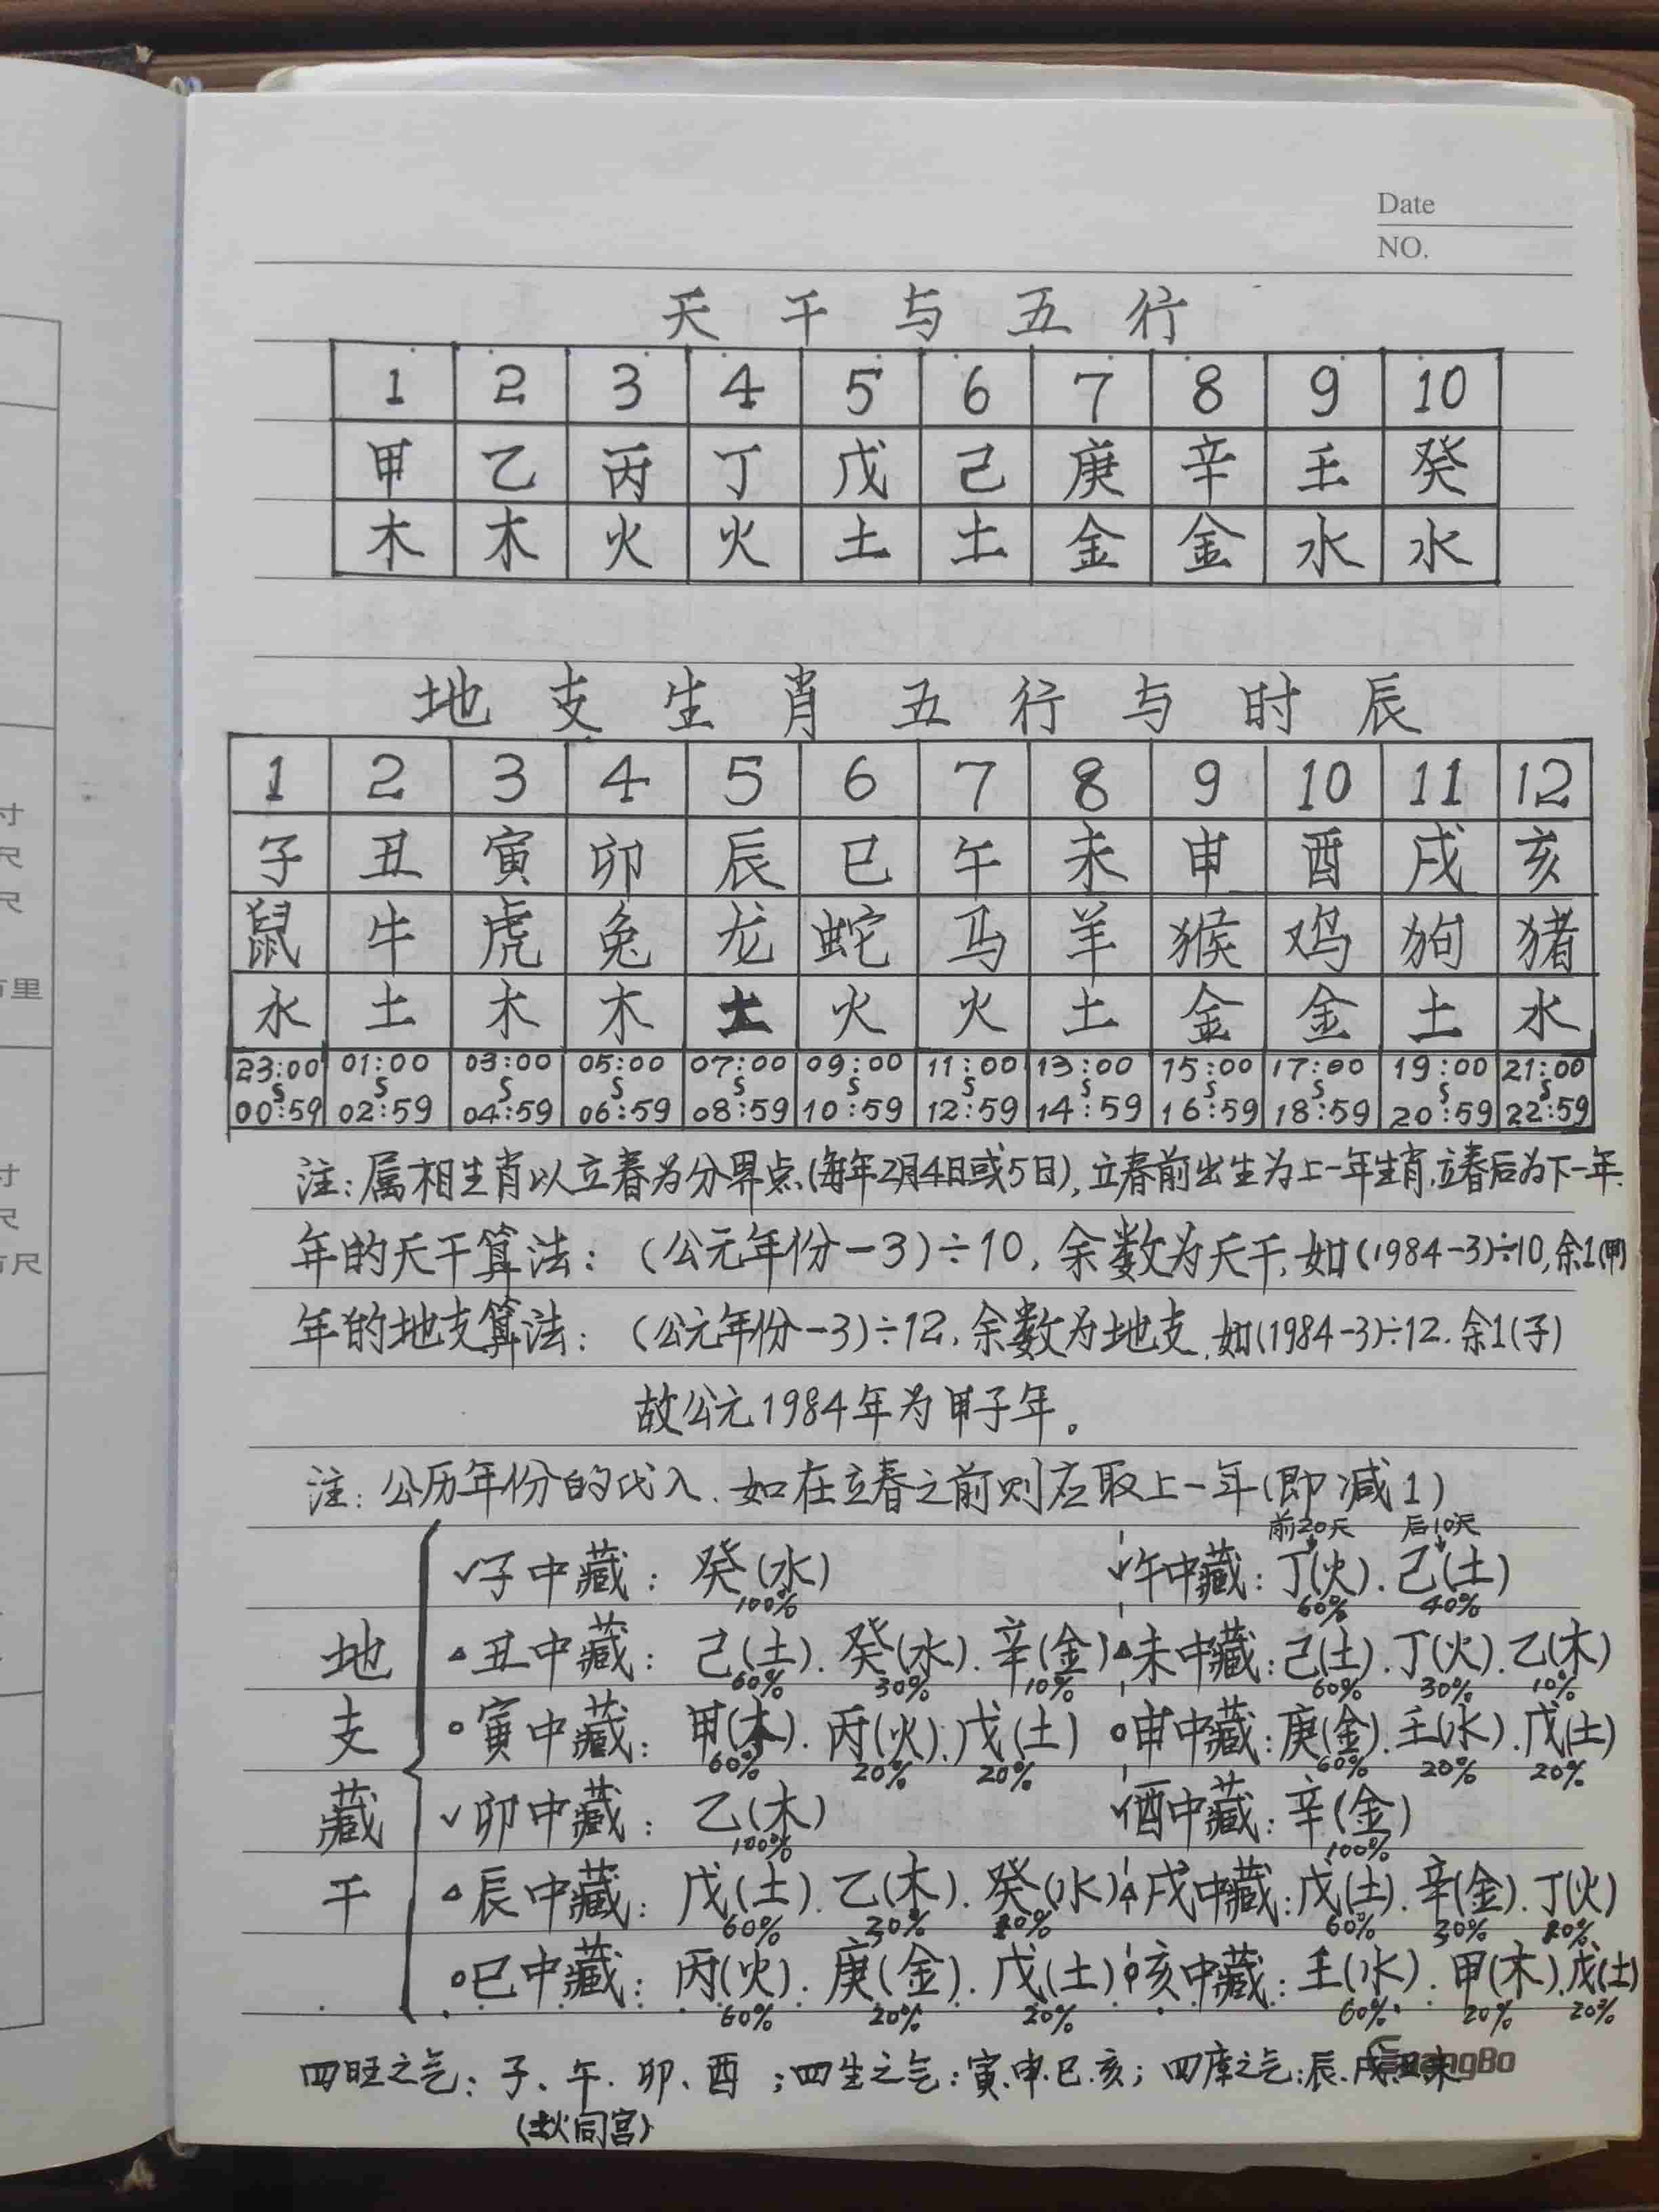 Date
NO.
天干与五行
1 2 3 4 5 6 7 8 9 10
甲 乙 丙 丁 戊 己 庚 辛 壬 癸
木 木 火 火 土 土 金 金 水 水
地支生肖五行与时辰
1 2 3 4 5 6 7 8 9 10 11 12
子 丑 寅 卯 辰 巳 午 未 申 酉 戌 亥
鼠 牛 虎 兔 龙 蛇 马 羊 猴 鸡 狗 猪
水 土 木 木 土 火 火 土 金 金 土 水
23:00 01:00 03:00 05:00 07:00 09:00 11:00 13:00 15:00 17:00 19:00 21:00
00:59 02:59 04:59 06:59 08:59 10:59 12:59 14:59 16:59 18:59 20:59 22:59
注:属相生肖以立春为分界点(每年2月4日或5日),立春前出生为上一年生肖,立春后为下一年.
年的天干算法:(公元年份-3)÷10,余数为天干,如(1984-3)÷10,余1(甲)
年的地支算法:(公元年份-3)÷12,余数为地支,如(1984-3)÷12.余1(子)
故公元1984年为甲子年。
注:公历年份的代入.如在立春之前则应取上一年(即减1)
前20天 后10天
✓子中藏:癸(水) ✓午中藏:丁(火).己(土)
100% 60% 40%
地 △丑中藏:己(土).癸(水).辛(金) △未中藏:己(土).丁(火).乙(木)
60% 30% 10% 60% 30% 10%
支 ○寅中藏:甲(木).丙(火).戊(土) ○申中藏:庚(金).壬(水).戊(土)
60% 20% 20% 60% 20% 20%
藏 ✓卯中藏:乙(木) ✓酉中藏:辛(金)
100% 100%
干 △辰中藏:戊(土).乙(木).癸(水) △戌中藏:戊(土).辛(金).丁(火)
60% 30% 60% 30%
○巳中藏:丙(火).庚(金).戊(土) 亥中藏:壬(水).甲(木).戊(土)
60% 20% 20% 60% 20% 20%
四旺之气:子、午.卯、酉;四生之气:寅.申.巳.亥;四库之气:辰.戌.丑.未
(土火同宫)
GuangBo
寸
尺
尺
里
寸
尺
尺